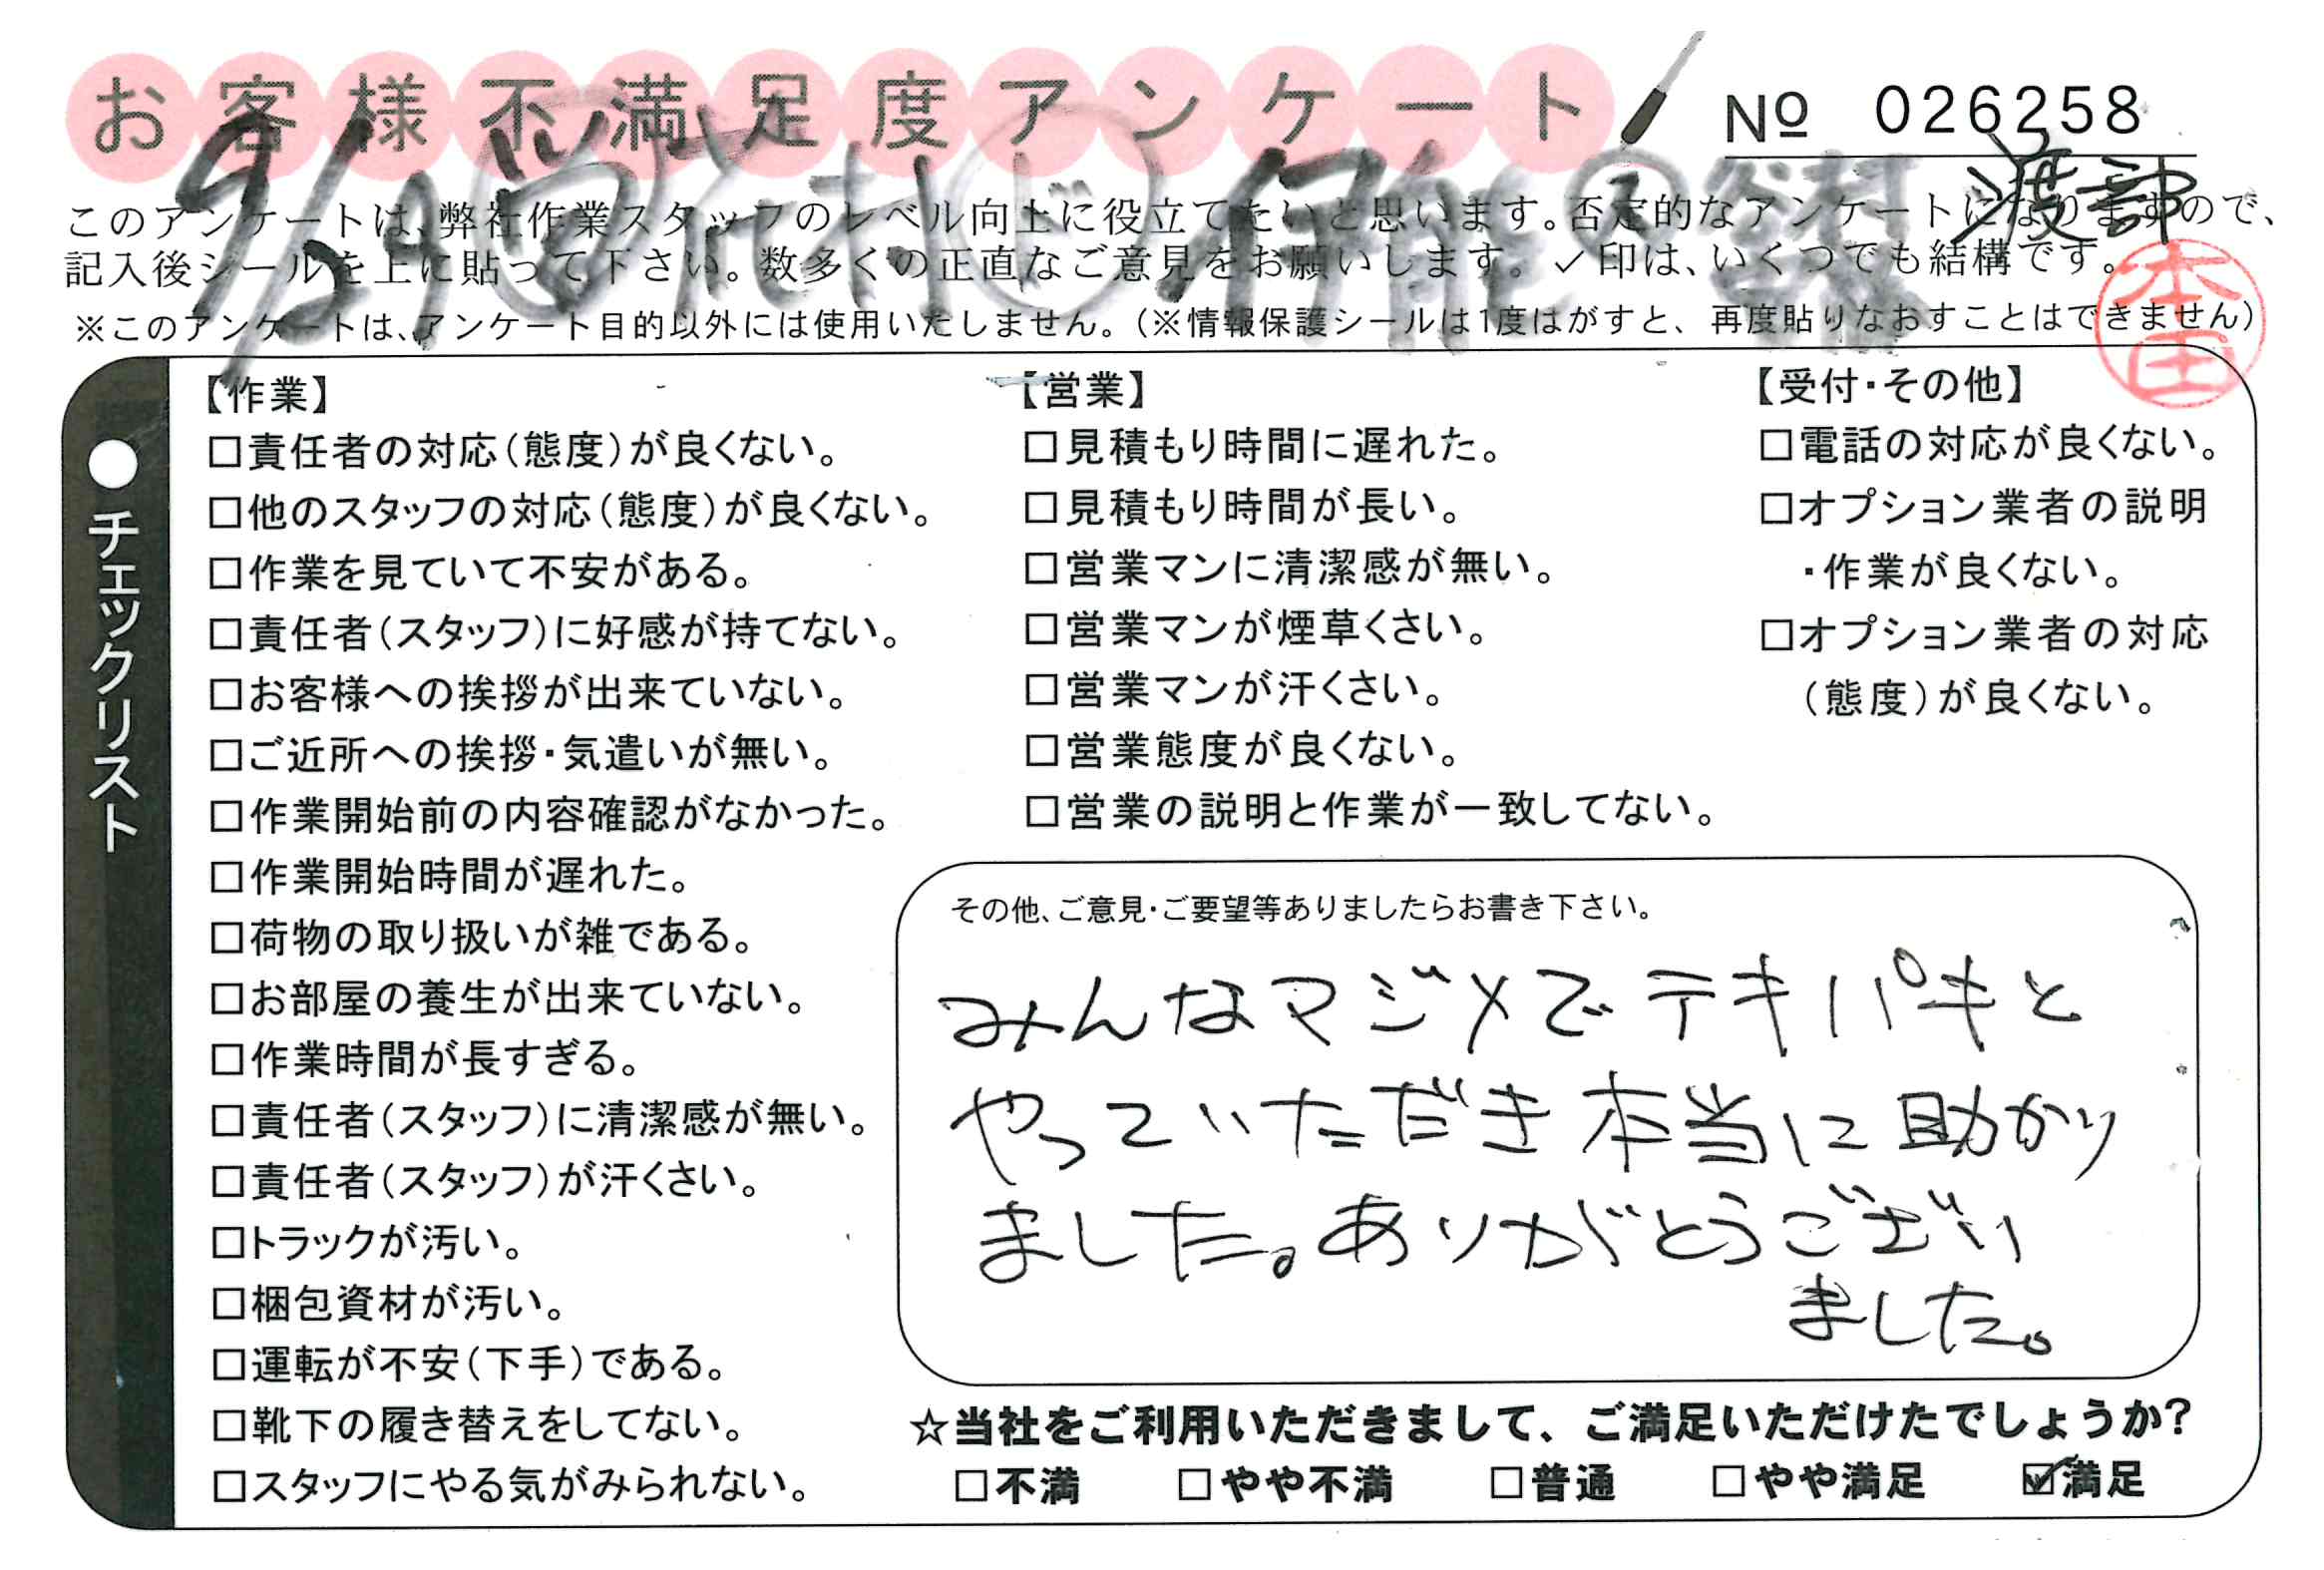 お客様不満足度アンケート
Nº 026258
渡部
本田
このアンケートは、弊社作業スタッフのレベル向上に役立てたいと思います。否定的なアンケートになりますので、
記入後シールを上に貼って下さい。数多くの正直なご意見をお願いします。✓印は、いくつでも結構です。
※このアンケートは、アンケート目的以外には使用いたしません。(※情報保護シールは1度はがすと、再度貼りなおすことはできません)
9/29
●チェックリスト
【作業】
□責任者の対応(態度)が良くない。
□他のスタッフの対応(態度)が良くない。
□作業を見ていて不安がある。
□責任者(スタッフ)に好感が持てない。
□お客様への挨拶が出来ていない。
□ご近所への挨拶・気遣いが無い。
□作業開始前の内容確認がなかった。
□作業開始時間が遅れた。
□荷物の取り扱いが雑である。
□お部屋の養生が出来ていない。
□作業時間が長すぎる。
□責任者(スタッフ)に清潔感が無い。
□責任者(スタッフ)が汗くさい。
□トラックが汚い。
□梱包資材が汚い。
□運転が不安(下手)である。
□靴下の履き替えをしてない。
□スタッフにやる気がみられない。
【営業】
□見積もり時間に遅れた。
□見積もり時間が長い。
□営業マンに清潔感が無い。
□営業マンが煙草くさい。
□営業マンが汗くさい。
□営業態度が良くない。
□営業の説明と作業が一致してない。
【受付・その他】
□電話の対応が良くない。
□オプション業者の説明
・作業が良くない。
□オプション業者の対応
(態度)が良くない。
その他、ご意見・ご要望等ありましたらお書き下さい。
みんなマジメでテキパキと
やっていただき本当に助かり
ました。ありがとうござい
ました。
☆当社をご利用いただきまして、ご満足いただけたでしょうか?
□不満 □やや不満 □普通 □やや満足 ☑満足